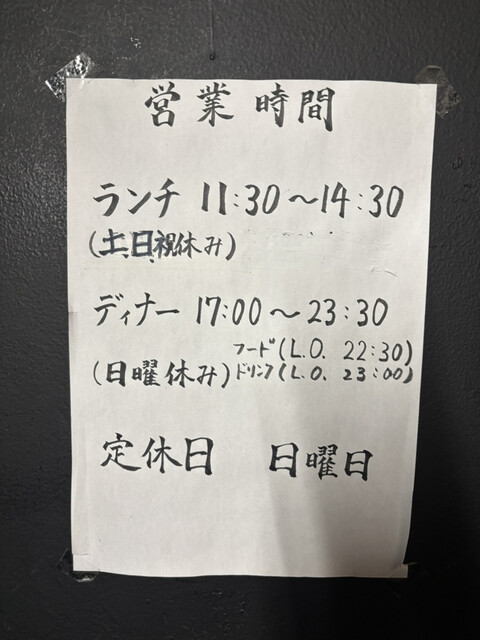 営業時間
ランチ 11:30〜14:30
(土、日、祝休み)
ディナー 17:00〜23:30
フード(L.O. 22:30)
(日曜休み)ドリンク(L.O. 23:00)
定休日 日曜日